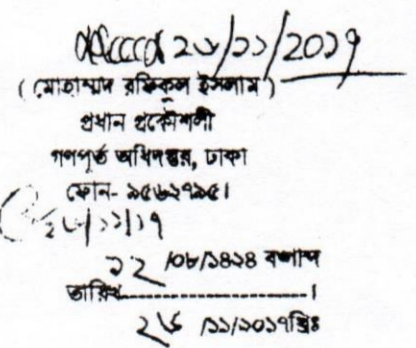 ২৬/১১/২০১৭
( মোহাম্মদ রফিকুল ইসলাম )
প্রধান প্রকৌশলী
গণপূর্ত অধিদপ্তর, ঢাকা
ফোন- ৯৫৬২৭৯৫।
২৬/১১/১৭
১২ /০৮/১৪২৪ বঙ্গাব্দ
তারিখ.............................।
২৬ /১১/২০১৭খ্রিঃ